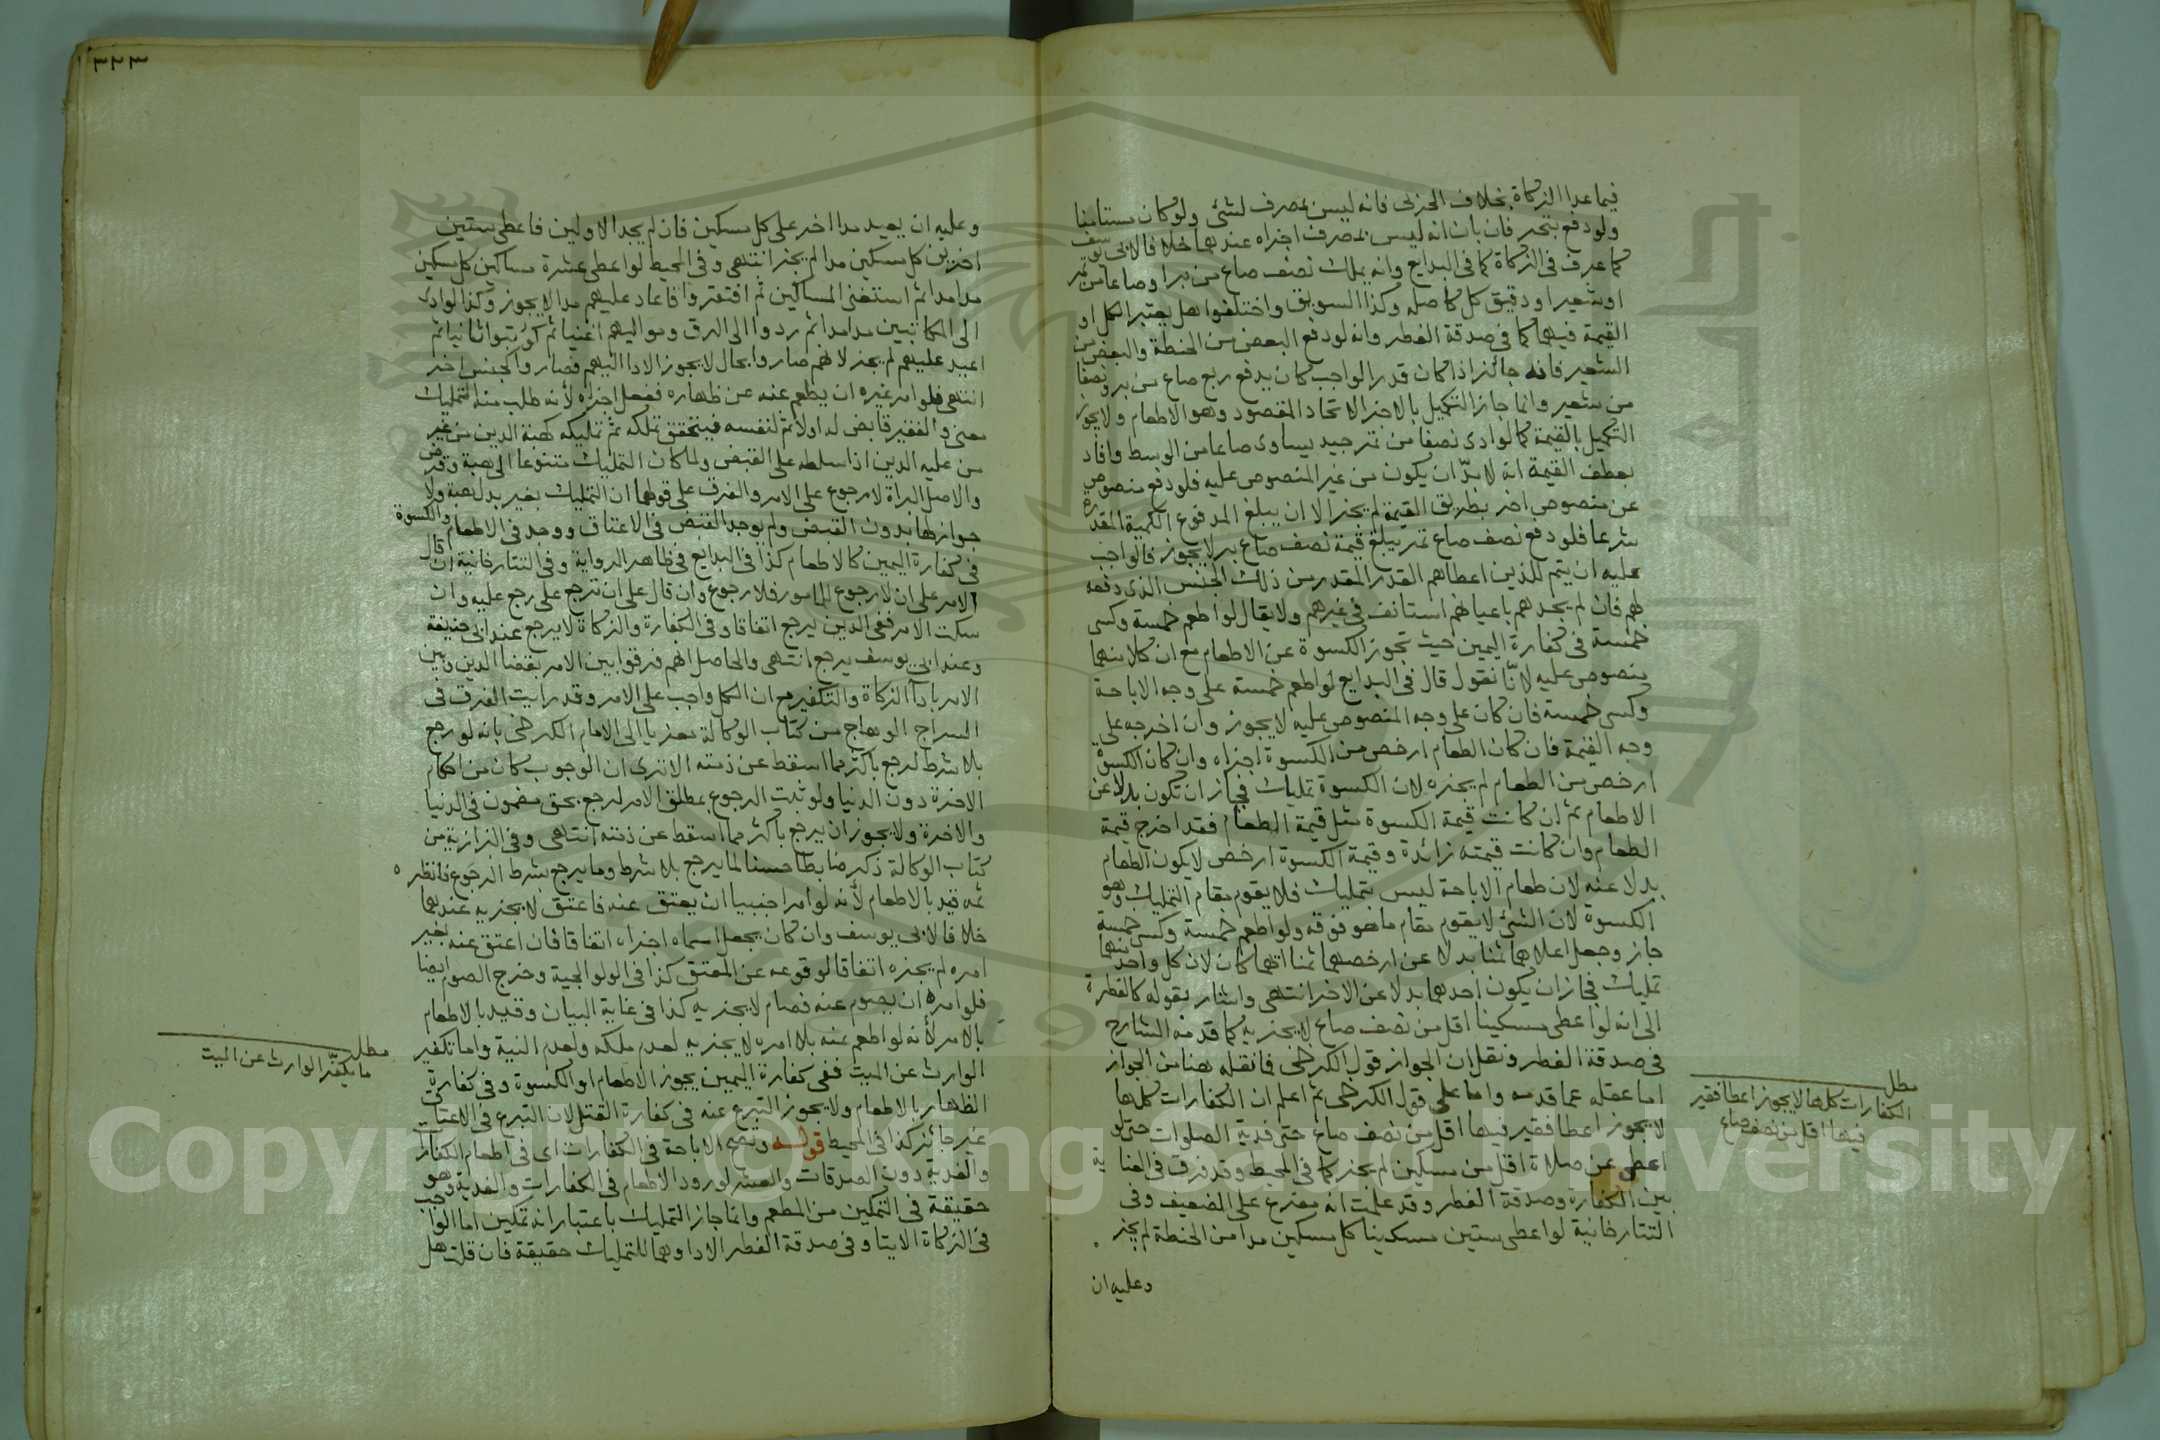 فيما عدا الزكاة بخلاف الحربى فانه ليس بمصرف لشئ ولو كان مستامنا
ولو دفع بتحر فان بان انه ليس بمصرف اجزاه عندهما خلافا لابى يوسف
كما عرف فى الزكاة كما فى البدايع وانه يملك نصف صاع من بر او صاعا من تمر
او شعير او دقيق كل كاصله وكذا السويق واختلفوا هل يعتبر الكل او
القيمة فيهما كما فى صدقة الفطر وانه لو دفع البعض من الحنطة والبعض من
الشعير فانه جائز اذا كان قدر الواجب كان يدفع ربع صاع من بر ونصفا
من شعير وانما جاز التكميل بالاخر لاتحاد المقصود وهو الاطعام ولا يجوز
التكميل بالقيمة كما لو ادى نصفا من تمر جيد يساوى صاعا من الوسط وافاد
بعطف القيمة انه لا بدّ ان يكون من غير المنصوص عليه فلو دفع منصوص
عن منصوص اخر بطريق القيمة لم يجز الا ان يبلغ المدفوع الكمية المقدرة
شرعا فلو دفع نصف صاع تمر يبلغ قيمة نصف صاع بر لا يجوز فالواجب
عليه ان يتم للذين اعطاهم القدر المقدر من ذلك الجنس الذى دفعه
لهم فان لم يجدهم باعيانهم استانف فى غيرهم ولا يقال لو اطعم خمسة وكسى
خمسة فى كفارة اليمين حيث تجوز الكسوة عن الاطعام مع ان كلا منهما
منصوص عليه لانّا نقول قال فى البدايع لو اطعم خمسة على وجه الاباحة
وكسى خمسة فان كان على وجه المنصوص عليه لا يجوز وان اخرجه على
وجه القيمة فان كان الطعام ارخص من الكسوة اجزاه وان كان الكسوة
ارخص من الطعام لم يجزه لان الكسوة تمليك فجاز ان تكون بدلا عن
الاطعام ثم ان كانت قيمة الكسوة مثل قيمة الطعام فقد اخرج قيمة
الطعام وان كانت قيمته زائدة وقيمة الكسوة ارخص لا يكون الطعام
بدلا عنه لان طعام الاباحة ليس بتمليك فلا يقوم مقام التمليك وهو
الكسوة لان الشئ لا يقوم مقام ما هو فوقه ولو اطعم خمسة وكسى خمسة
جاز وجعل اعلاهما ثمنا بدلا عن ارخصهما ثمنا ايهما كان لان كل واحد منهما
تمليك فجاز ان يكون احدهما بدلا عن الاخر انتهى واشار بقوله كالفطرة
الى انه لو اعطى مسكينا اقل من نصف صاع لا يجزيه كما قدمه الشارح
فى صدقة الفطر ونقل ان الجواز قول الكرخى فما نقله هنا من الجواز
اما غفلة عما قدمه واما على قول الكرخى ثم اعلم ان الكفارات كلها
لا يجوز اعطا فقير فيها اقل من نصف صاع حتى فدية الصلوات حتى لو
اعطى عن صلاة اقل من مسكين لم يجز كما فى المحيط وقد فرق فى الغاية
بين الكفارة وصدقة الفطر وقد علمت انه مفرع على الضعيف وفى
التتارخانية لو اعطى ستين مسكينا كل مسكين مدا من الحنطة لم يجز
وعليه ان
مطلب
الكفارات كلها لا يجوز اعطا فقير
فيها اقل من نصف صاع
٣٢٣
وعليه ان يعيد مدا اخر على كل مسكين فان لم يجد الاولين فاعطى ستين
اخرين كل مسكين مدا لم يجز انتهى وفى المحيط لو اعطى عشرة مساكين كل مسكين
مدا مدا ثم استغنى المساكين ثم افتقروا فاعاد عليهم مدا لا يجوز وكذا لو ادى
الى المكاتبين مدا مدا ثم ردوا الى الرق ومواليهم اغنيا ثم كوتبوا ثانيا ثم
اعيد عليهم لم يجز لانهم صاروا بحال لا يجوز الادا اليهم فصاروا كجنس اخر
انتهى فلو امر غيره ان يطعم عنه عن ظهاره ففعل اجزاه لأنه طلب منه التمليك
معنى والفقير قابض له اولا ثم لنفسه فيتحقق تملكه ثم تمليكه كهبة الدين من غير
من عليه الدين اذا سلطه على القبض ولما كان التمليك متنوعا الى هبة وقرض
والاصل البراة لا رجوع على الامر والفرق على قولهما ان التمليك بغير بدل هبة ولا
جواز لها بدون القبض ولم يوجد القبض فى الاعتاق ووجد فى الاطعام والكسوة
فى كفارة اليمين كالاطعام كذا فى البدايع فى ظاهر الرواية وفى التتارخانية ان قال
الامر على ان لا رجوع للمامور فلا رجوع وان قال على ان ترجع على رجع عليه وان
سكت الامر ففى الدين يرجع اتفاقا وفى الكفارة والزكاة لا يرجع عند ابى حنيفة
وعند ابى يوسف يرجع انتهى والحاصل انهم فرقوا بين الامر بقضا الدين وبين
الامر بادآ الزكاة والتكفير مع ان الكل واجب على الامر وقد رايت الفرق فى
السراج الوهاج من كتاب الوكالة معزيا الى الامام الكرخى بانه لو رجع
بلا شرط لرجع باكثر مما اسقط عن ذمته الا ترى ان الوجوب كان من احكام
الاخرة دون الدنيا ولو ثبت الرجوع بمطلق الامر لرجع بحق مضمون فى الدنيا
والاخرة ولا يجوز ان يرجع باكثر مما اسقط عن ذمته انتهى وفى البزازية من
كتاب الوكالة ذكر ضابطا حسنا لما يرجع بلا شرط وما يرجع بشرط الرجوع فانظره
ثمه قيد بالاطعام لأنه لو امر اجنبيا ان يعتق عنه فاعتق لا يجزيه عندهما
خلافا لابى يوسف وان كان بجعل سماه اجزاه اتفاقا فان اعتق عنه بغير
امره لم يجزه اتفاقا لوقوعه عن المعتق كذا فى الولوالجية وخرج الصوم ايضا
فلو امره ان يصوم عنه فصام لا يجزيه كذا فى غاية البيان وقيد بالاطعام
بالامر لأنه لو اطعم عنه بلا امره لا يجزيه لعدم ملكه ولعدم النية واما تكفير
الوارث عن الميت ففى كفارة اليمين يجوز الاطعام او الكسوة وفى كفارة
الظهار بالاطعام ولا يجوز التبرع عنه فى كفارة القتل لان التبرع فى الاعتاق
غير جائز كذا فى المحيط قوله وتصح الاباحة فى الكفارات اى فى اطعام الكفارات
والفدية دون الصدقات والعشر لورود الاطعام فى الكفارات والفدية وهو
حقيقة فى التمكين من المطعم وانما جاز التمليك باعتبار انه تمكين اما الواجب
فى الزكاة الايتا وفى صدقة الفطر الادا وهما للتمليك حقيقة فان قلت هل
مطلب
ما يكفّر الوارث عن الميت
Copyright © King Saud University